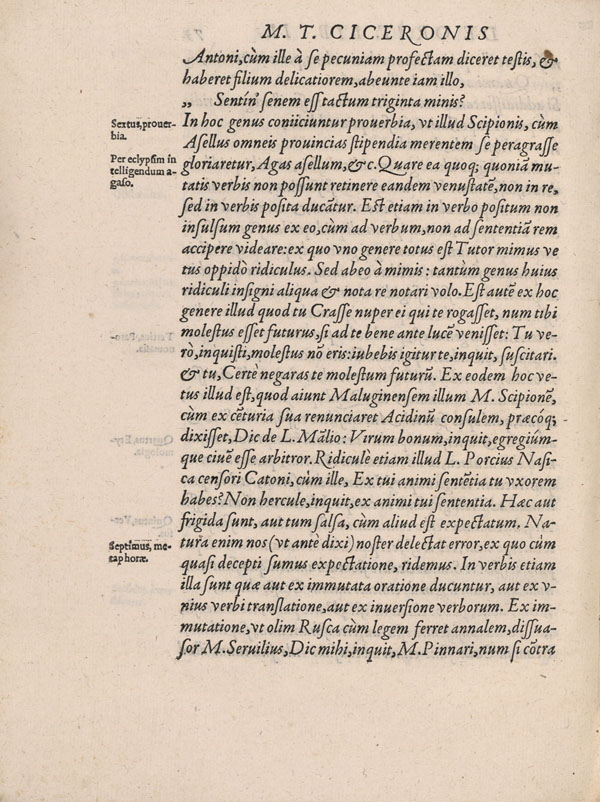 M. T. CICERONIS
Antoni, cùm ille à se pecuniam profectam diceret testis, &
haberet filium delicatiorem, abeunte iam illo,
„ Sentín' senem ess tactum triginta minis?
Sextus, prouer-
bia.
In hoc genus coniiciuntur prouerbia, vt illud Scipionis, cùm
Asellus omneis prouincias stipendia merentem se peragrasse
Per eclypsim in
telligendum a-
gaso.
gloriaretur, Agas asellum, & c. Quare ea quoq; quoniã mu-
tatis verbis non possunt retinere eandem venustatē, non in re,
sed in verbis posita ducãtur. Est etiam in verbo positum non
insulsum genus ex eo, cùm ad verbum, non ad sententiã rem
accipere videare: ex quo vno genere totus est Tutor mimus ve
tus oppidò ridiculus. Sed abeo à mimis: tantùm genus huius
ridiculi insigni aliqua & nota re notari volo. Est autē ex hoc
genere illud quod tu Crasse nuper ei qui te rogasset, num tibi
molestus esset futurus, si ad te bene ante lucē venisset: Tu ve-
rò, inquisti, molestus nõ eris: iubebis igitur te, inquit, suscitari.
& tu, Certè negaras te molestum futurũ. Ex eodem hoc ve-
tus illud est, quod aiunt Maluginensem illum M. Scipionē,
cùm ex cēturia sua renunciaret Acidinũ consulem, præcóq;
dixisset, Dic de L. Mãlio: Virum bonum, inquit, egregiúm-
que ciuē esse arbitror. Ridiculè etiam illud L. Porcius Nasi-
ca censori Catoni, cùm ille, Ex tui animi sentētia tu vxorem
habes? Non hercule, inquit, ex animi tui sententia. Hæc aut
frigida sunt, aut tum salsa, cùm aliud est expectatum. Na-
Septimus, me-
taphoræ.
tura enim nos (vt antè dixi) noster delectat error, ex quo cùm
quasi decepti sumus expectatione, ridemus. In verbis etiam
illa sunt quæ aut ex immutata oratione ducuntur, aut ex v-
nius verbi translatione, aut ex inuersione verborum. Ex im-
mutatione, vt olim Rusca cùm legem ferret annalem, dissua-
sor M. Seruilius, Dic mihi, inquit, M. Pinnari, num si cõtra